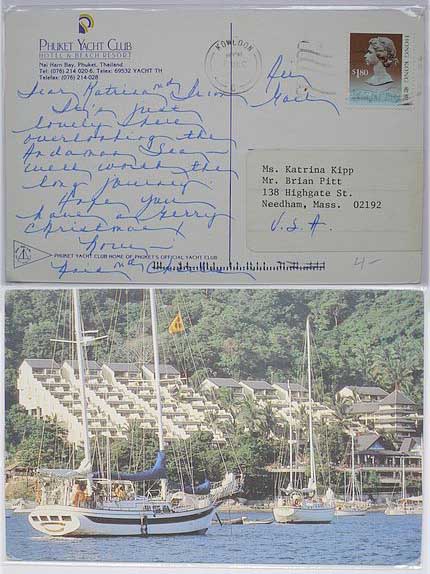 PHUKET YACHT CLUB
HOTEL & BEACH RESORT
Nai Harn Bay, Phuket, Thailand.
Tel: (076) 214 020-6, Telex: 69532 YACHT TH
Telefax: (076) 214-028
KOWLOON
Air
Mail
HONG KONG
$1.80
Dear Katrina and Brian
It's just
lovely here
overlooking the
Andaman Sea -
well worth the
long journey.
Hope you
have a Merry
Christmas
Love
Ms. Katrina Kipp
Mr. Brian Pitt
138 Highgate St.
Needham, Mass. 02192
U.S.A.
PHUKET YACHT CLUB HOME OF PHUKET'S OFFICIAL YACHT CLUB
4-